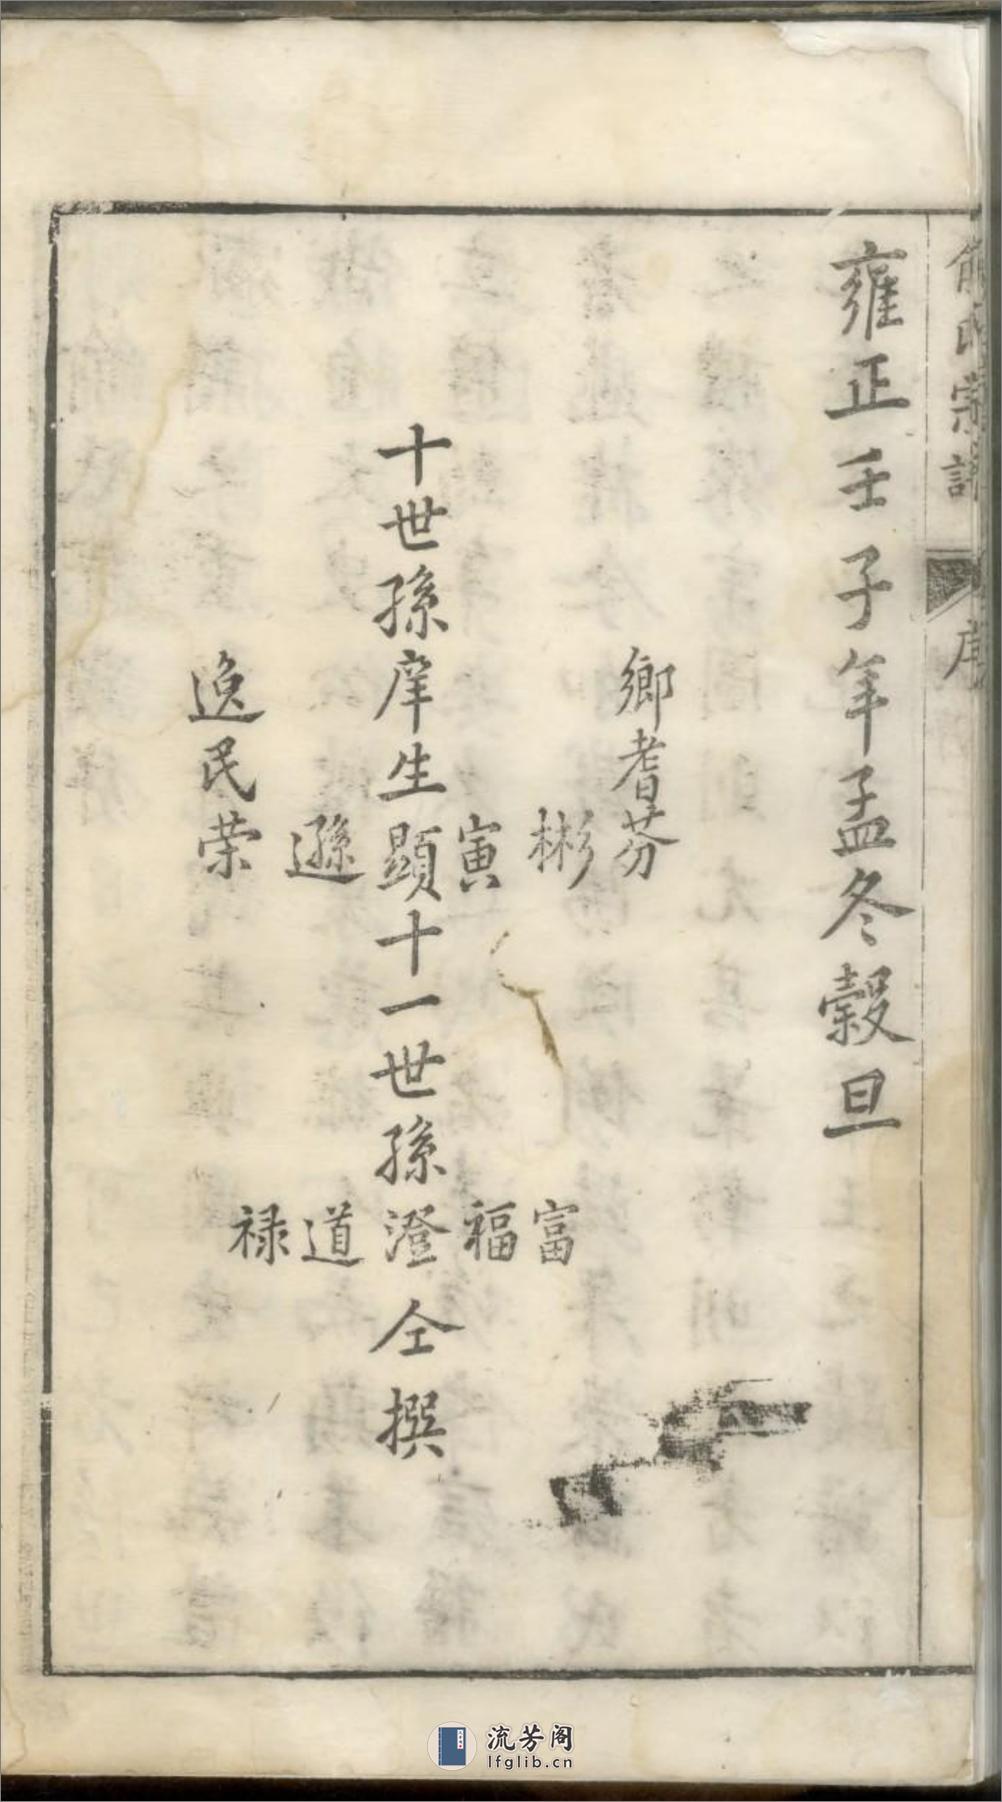 俞氏宗譜
序
雍正壬子年孟冬穀旦
鄉耆芬
彬
寅
十世孫庠生顯十一世孫澄仝撰
遜
逸民荣
富
福
道
禄
流芳阁
lfglib.cn